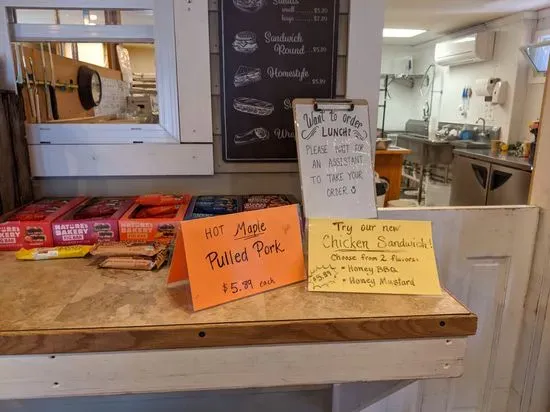 Salads
small ..... $5.29
large ..... $7.29
Sandwich
Round ..... $5.29
Homestyle
Want to order
LUNCH?
PLEASE WAIT FOR
AN ASSISTANT
TO TAKE YOUR
ORDER
NATURE'S
BAKERY
FIG BAR
HOT Maple
Pulled Pork
$5.89 each
Try our new
Chicken Sandwich!
Choose from 2 flavors:
$5.89
• Honey BBQ
• Honey Mustard